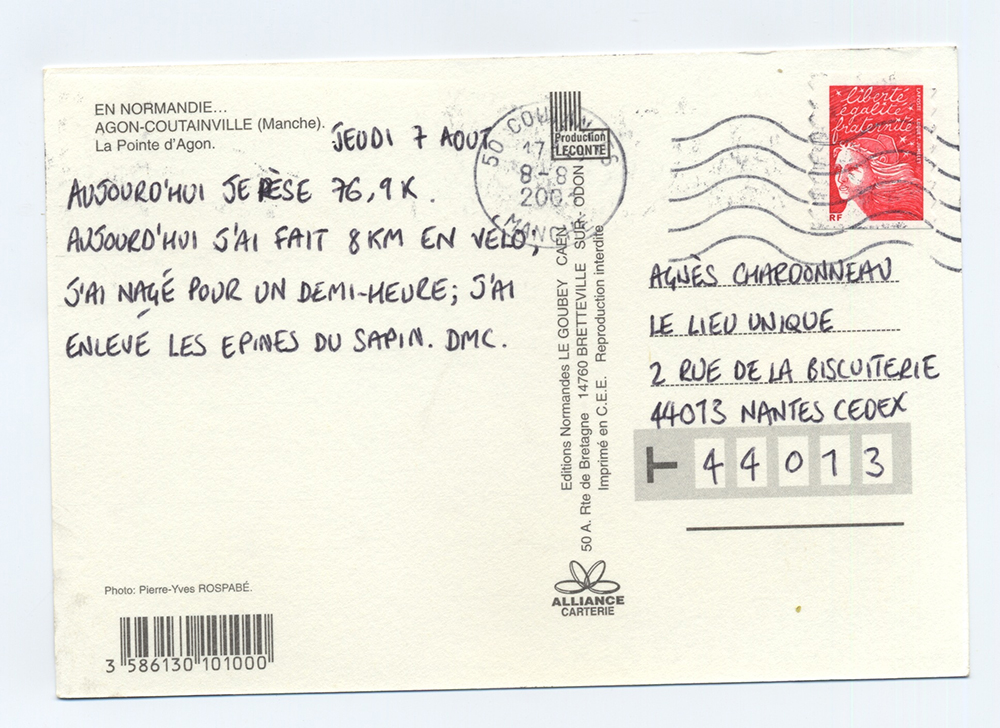 EN NORMANDIE...
AGON-COUTAINVILLE (Manche).
La Pointe d'Agon.
JEUDI 7 AOUT
AUJOURD'HUI JE PÈSE 76,9 K.
AUJOURD'HUI J'AI FAIT 8 KM EN VÉLO;
J'AI NAGÉ POUR UN DEMI-HEURE; J'AI
ENLEVÉ LES EPINES DU SAPIN. DMC.
Photo: Pierre-Yves ROSPABÉ.
3 586130 101000
Production
LECONTE
50
17
8-8
200
MANCHE
Editions Normandes LE GOUBEY CAEN
50 A. Rte de Bretagne 14760 BRETTEVILLE SUR ODON
Imprimé en C.E.E. Reproduction interdite
ALLIANCE
CARTERIE
liberté
égalité
fraternité
RF
AGNÈS CHARDONNEAU
LE LIEU UNIQUE
2 RUE DE LA BISCUITERIE
44013 NANTES CEDEX
T 44013